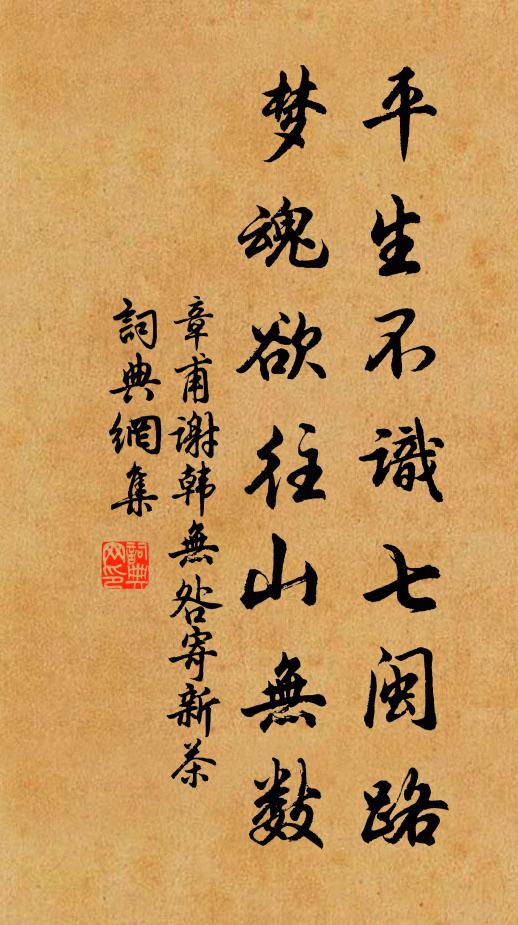 平生不識七閩路
梦魂欲往山無数
章甫谢韩無咎寄新茶
詞典網集
詞典网印